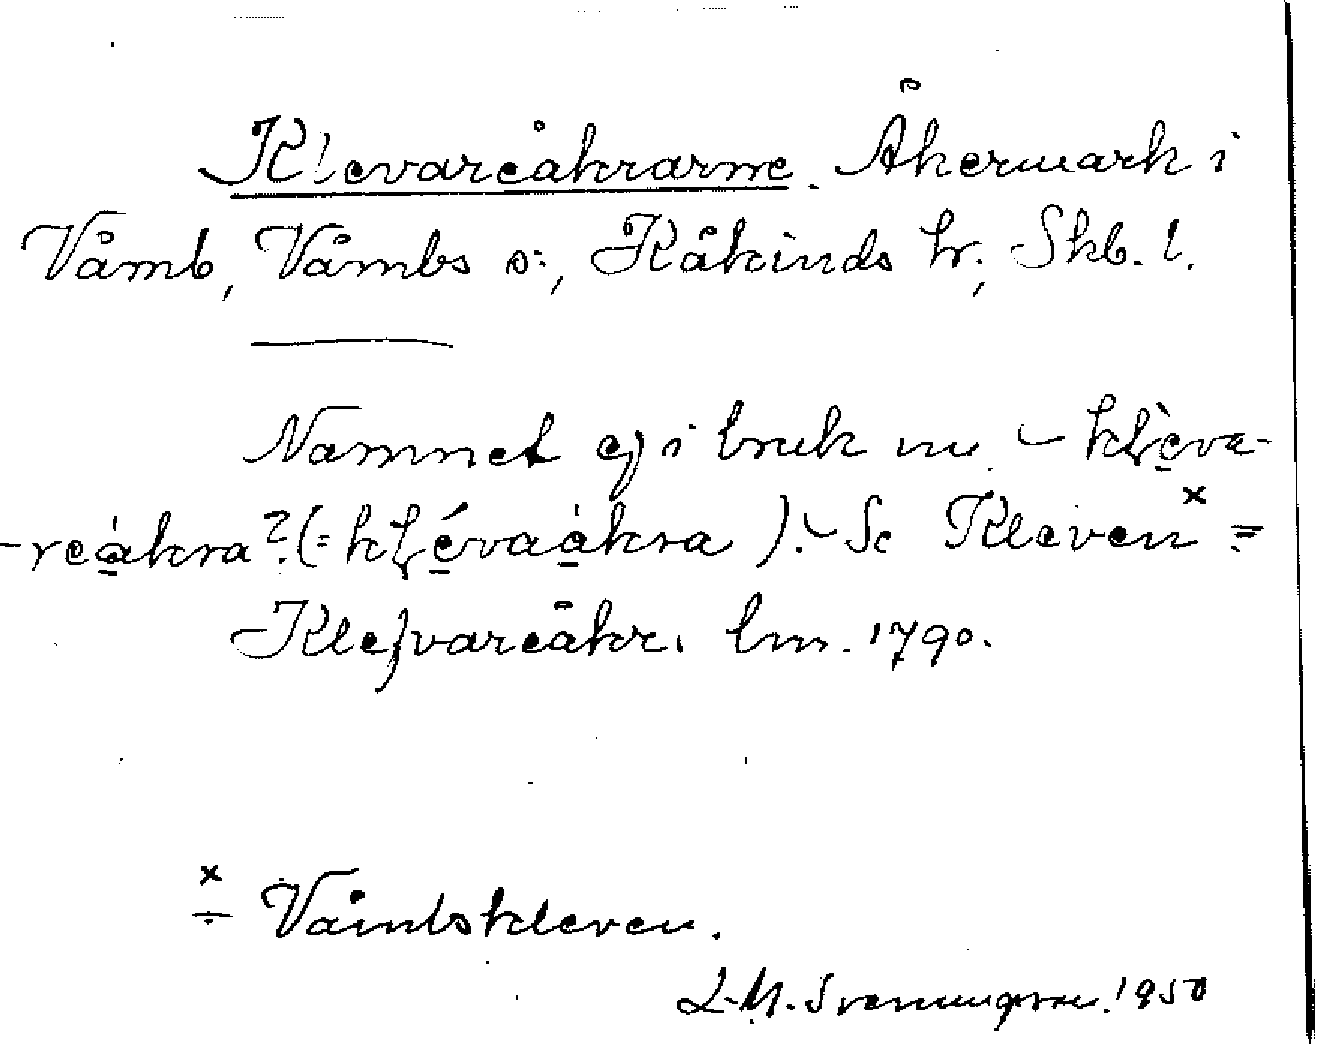 Klevareåkrarne. Åkermark i
Våmb, Våmbs s:, Kåkinds hr, Skb. l.
Namnet ej i bruk nu – kḷèva-
-reákra? (= kḷévaákra). – Se Kleven× =
Klefvareåkr. lm. 1790.
×
= Våmbskleven.
L-M. Svenungsson. 1950